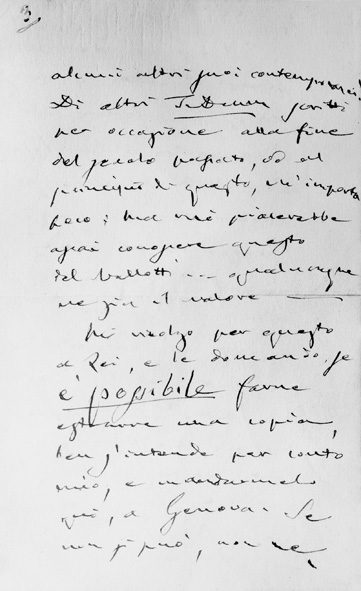 3
alcuni altri suoi contemporanei.
Di altri TeDeum scritti
per occasione alla fine
del secolo passato, od al
principio di questo, m'importa
poco; ma mi piacerebbe
assai conoscere questo
del Vallotti ... qualunque
ne sia il valore —
Mi rivolgo per questo
a Lei, e le domando, se
è possibile farne
estrarre una copia,
ben s'intende per conto
mio, e mandarmelo
quì, a Genova. Se
non si può, non ne